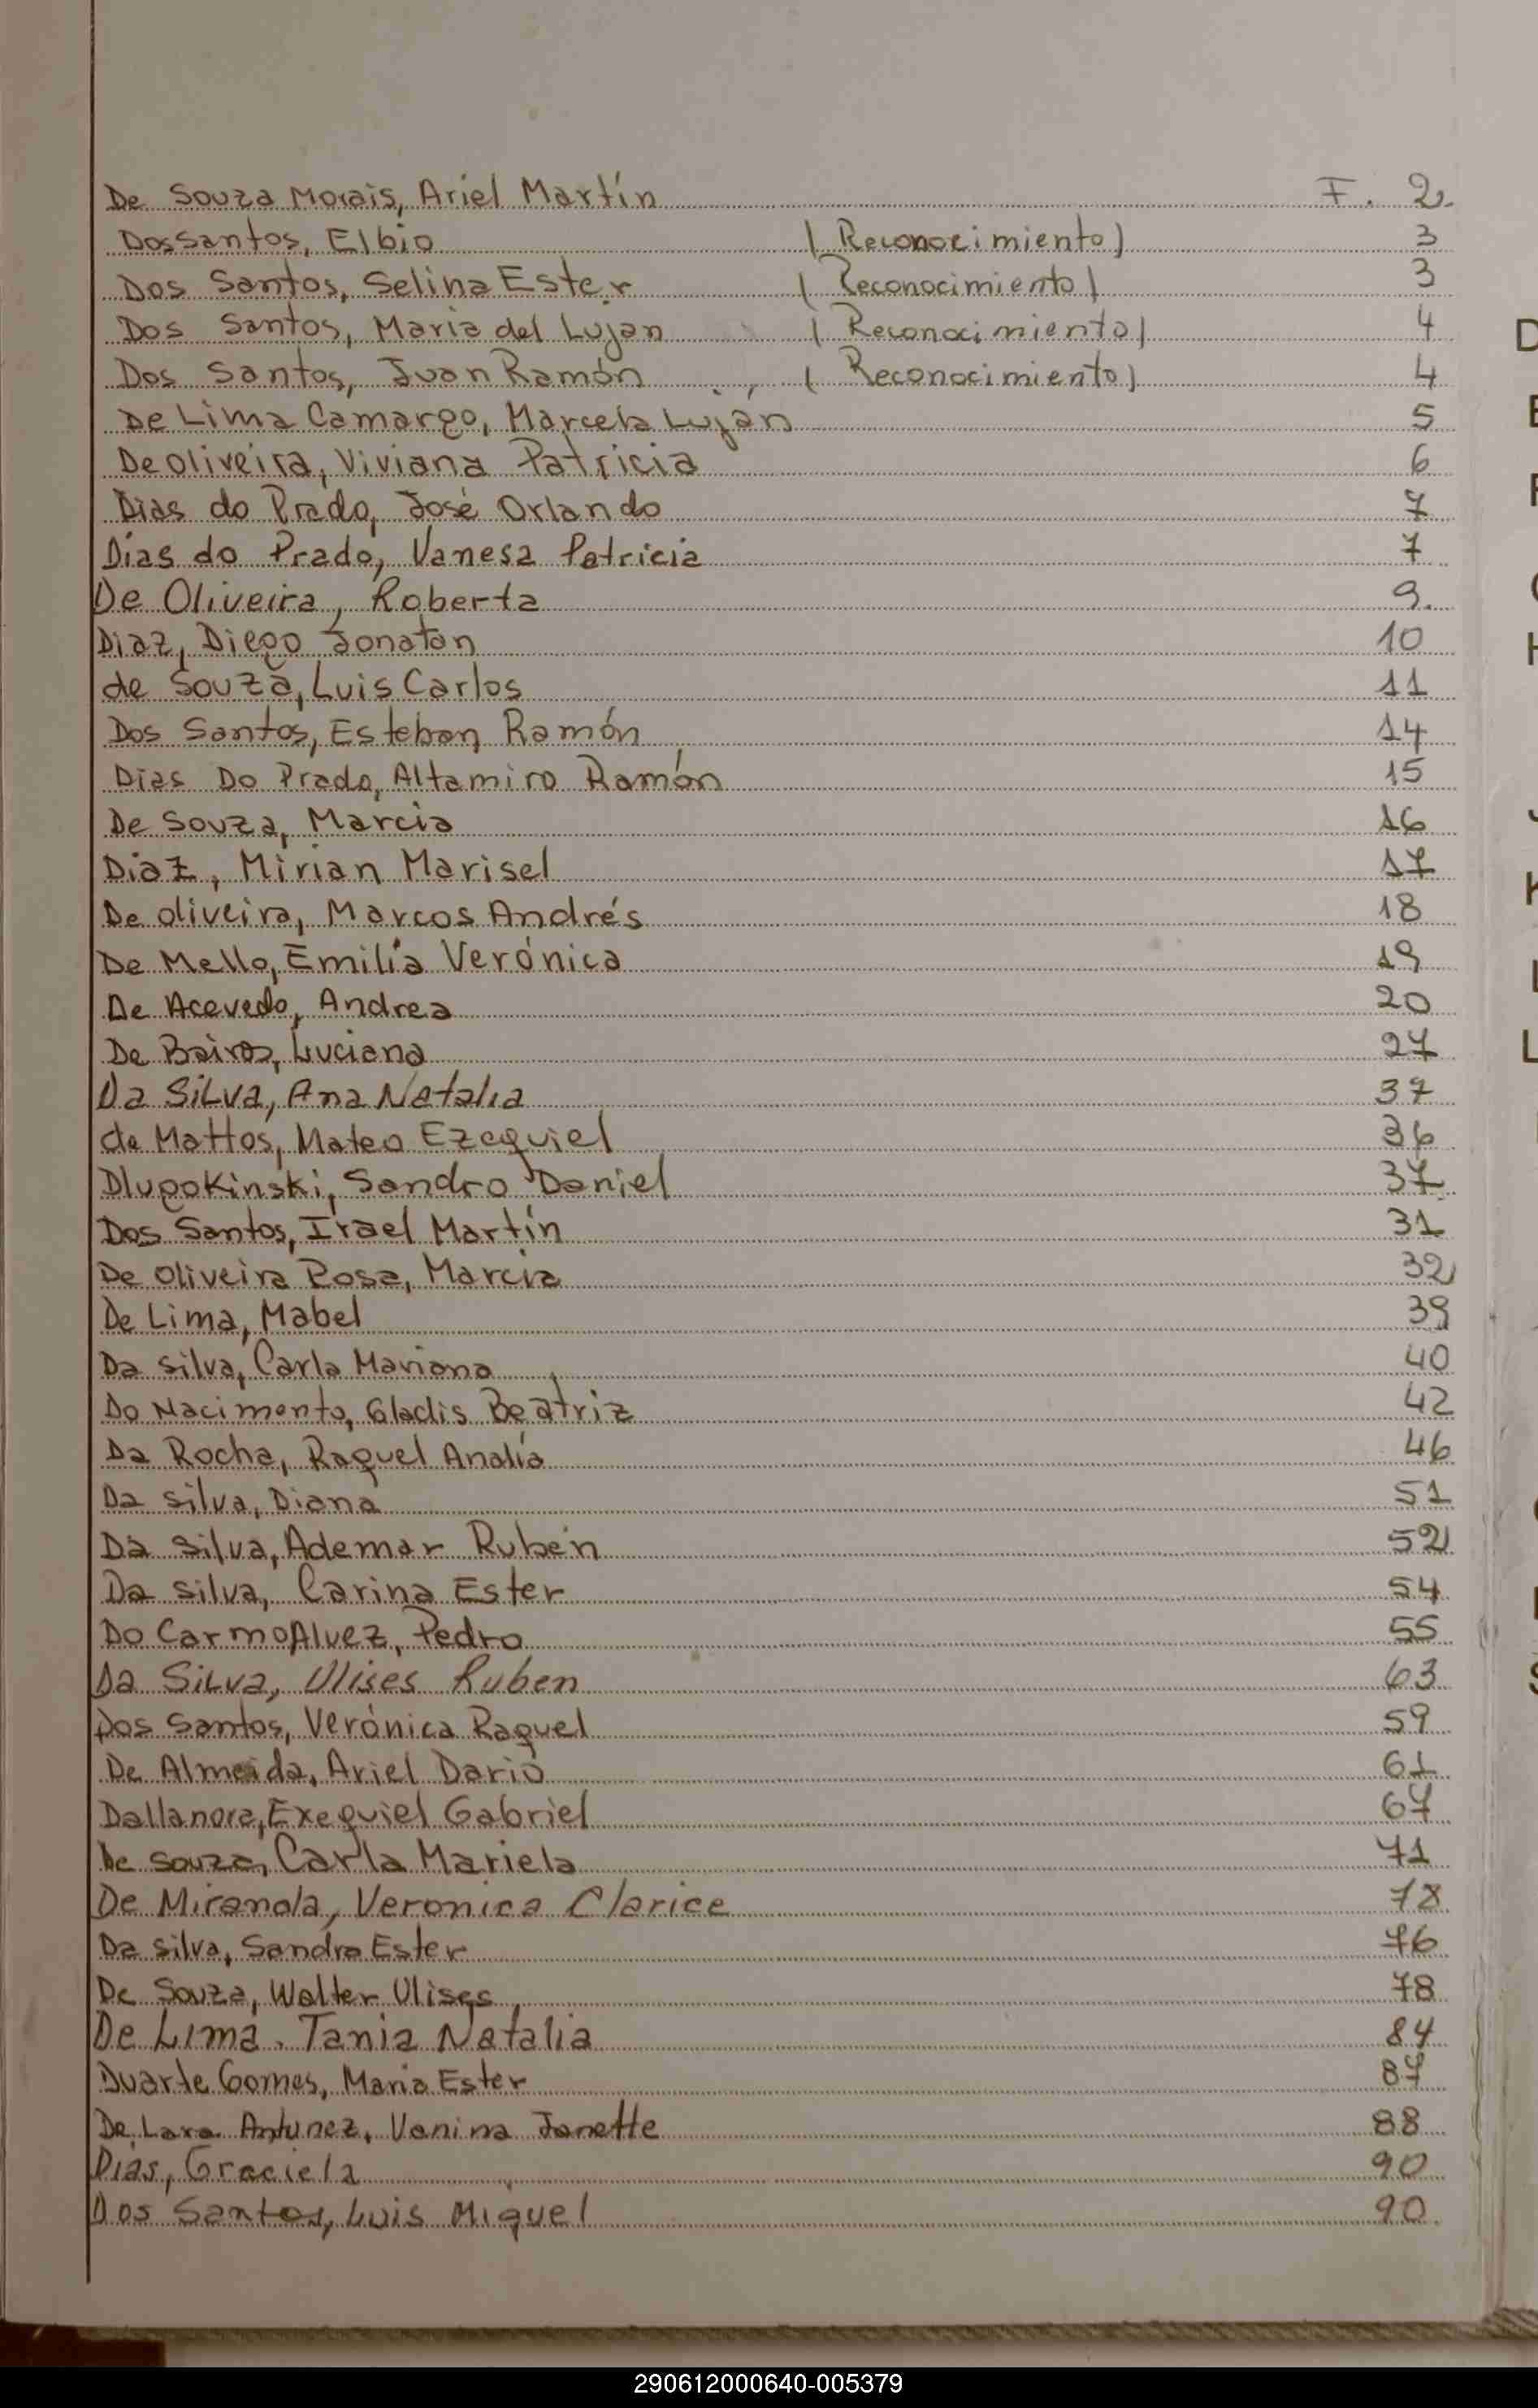 De Souza Morais, Ariel Martín F. 2
Dos Santos, Elbio (Reconocimiento) 3
Dos Santos, Selina Ester (Reconocimiento) 3
Dos Santos, Maria del Lujan (Reconocimiento) 4
Dos Santos, Juan Ramón (Reconocimiento) 4
De Lima Camargo, Marcela Luján 5
De Oliveira, Viviana Patricia 6
Dias do Prado, José Orlando 7
Dias do Prado, Vanesa Patricia 7
De Oliveira, Roberta 9.
Diaz, Diego Jonatan 10
de Souza, Luis Carlos 11
Dos Santos, Esteban Ramón 14
Dias Do Prado, Altamiro Ramón 15
De Souza, Marcia 16
Diaz, Mirian Marisel 17
De Oliveira, Marcos Andrés 18
De Mello, Emilia Verónica 19
De Acevedo, Andrea 20
De Bairos, Luciana 27
Da Silva, Ana Natalia 37
de Mattos, Mateo Ezequiel 36
Dlugokinski, Sandro Daniel 37
Dos Santos, Irael Martín 31
De Oliveira Rosa, Marcia 32
De Lima, Mabel 39
Da Silva, Carla Mariana 40
Do Nacimento, Gladis Beatriz 42
Da Rocha, Raquel Analía 46
Da Silva, Diana 51
Da Silva, Ademar Rubén 52
Da Silva, Carina Ester 54
Do Carmo Alvez, Pedro 55
Da Silva, Ulises Ruben 63
Dos Santos, Verónica Raquel 59
De Almeida, Ariel Darío 61
Dallanora, Exequiel Gabriel 67
De Souza, Carla Mariela 71
De Miranda, Veronica Clarice 78
Da Silva, Sandra Ester 76
De Souza, Walter Ulises 78
De Lima, Tania Natalia 84
Duarte Gomes, Maria Ester 87
De Lara Antunez, Vanina Janette 88
Dias, Graciela 90
Dos Santos, Luis Miguel 90
290612000640-005379